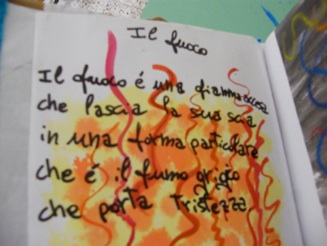 Il fuoco
Il fuoco é una fiamma rossa
che lascia la sua scia
in una forma particolare
che é il fumo grigio
che porta Tristezza